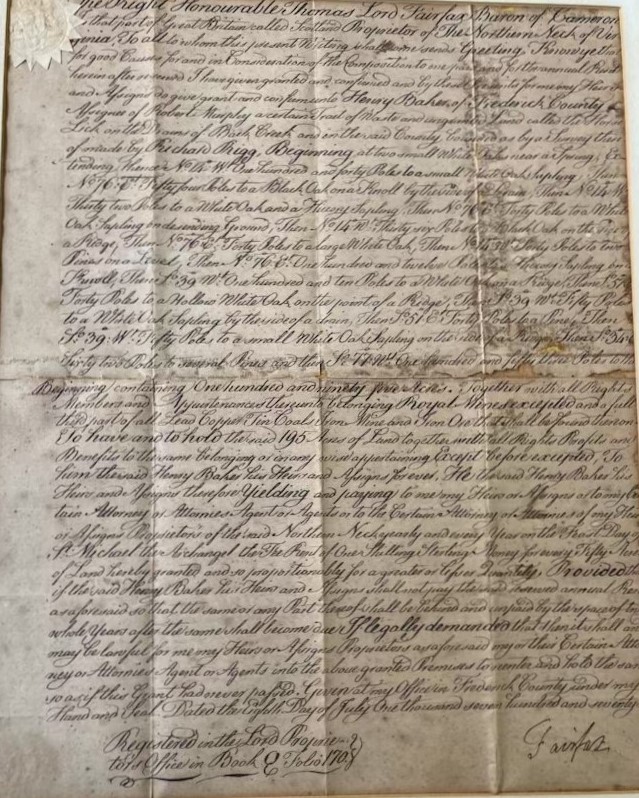 The Right Honourable Thomas Lord Fairfax Baron of Cameron
in that part of Great Britain called Scotland Proprietor of The Northern Neck of Vir
ginia, To all to whom this present Writing shall come sends Greeting. Know ye that
for good Causes for and in Consideration of the Composition to me paid and for the annual Rent
herein after reserved I have given granted and confirmed and by these Presents for me my Heirs
and Assigns do give grant and confirm unto Henry Baker of Frederick County
Assignee of Robert a certain Tract of Waste and ungranted Land called the
Lick on the Drains of Back Creek and in the said County, bounded as by a Survey there
of made by Richard Rigg, Beginning at two small White Oaks near a Spring, Ex
tending thence No. 14 Wt. One hundred and forty Poles to a small White Oak Sapling, Then
No. 76. Et. Fifty four Poles to a Black Oak on a Knoll by the side of a Drain, Then No. 14 W
Thirty two Poles to a White Oak and a Hicory Sapling, Then No. 76 Et. Forty Poles to a White
Oak Sapling on descending Ground, Then No. 14 Wt. Thirty six Poles to a Black Oak on the
a Ridge, Then No. 76 Et. Forty Poles to a large White Oak, Then No. 14 Wt. Forty Poles to two
Pines on a Level, Then No. 76 Et. One hundred and twelve Poles to a Hicory Sapling on
Knoll, Then So. 39 Wt. One hundred and ten Poles to a White Oak on a Ridge, Then So. 51 E
Forty Poles to a Hollow White Oak on the point of a Ridge, Then So. 39 Wt. Fifty Poles
to a White Oak Sapling by the side of a drain, Then So. 51 Et. Forty Poles to a Piney, Then
So. 39. Wt. Fifty Poles to a small White Oak Sapling on the side of a Ridge, Then So. 54
Sixty two Poles to several Pines and then So. 77 Wt. One hundred and fifty three Poles to the
Beginning containing One hundred and ninety five Acres. Together with all Rights
Members and Appurtenances thereunto belonging Royal Mines excepted and a full
third part of all Lead Copper Tin Coals Iron Mine and Iron Ore that shall be found thereon
To have and to hold the said 195 Acres of Land together with all Rights Profits and
Benefits to the same belonging or in any wise appertaining Except before excepted, To
him the said Henry Baker his Heirs and Assigns for ever, He the said Henry Baker his
Heirs and Assigns therefore Yielding and paying to me my Heirs or Assigns or to my Cer
tain Attorney or Attornies Agent or Agents or to the Certain Attorney or Attornies of my Heirs
or Assigns Proprietors of the said Northern Neck yearly and every Year on the Feast Day of
St. Michael the Archangel the Fee Rent of One Shilling Sterling Money for every Fifty Acres
of Land hereby granted and so proportionably for a greater or lesser Quantity, Provided that
if the said Henry Baker his Heirs and Assigns shall not pay the said reserved annual Rent
as aforesaid so that the same or any Part thereof shall be behind and unpaid by the space of two
whole Years after the same shall become due If legally demanded that then it shall and
may be lawful for me my Heirs or Assigns Proprietors as aforesaid my or their Certain Attor
ney or Attornies Agent or Agents into the above granted Premises to reenter and hold the same
so as if this Grant had never passed. Given at my Office in Frederick County under my
Hand and Seal Dated the Eighth Day of July One thousand seven hundred and seventy
Registered in the Lord Proprie
tors Office in Book Q Folio 170
Fairfax